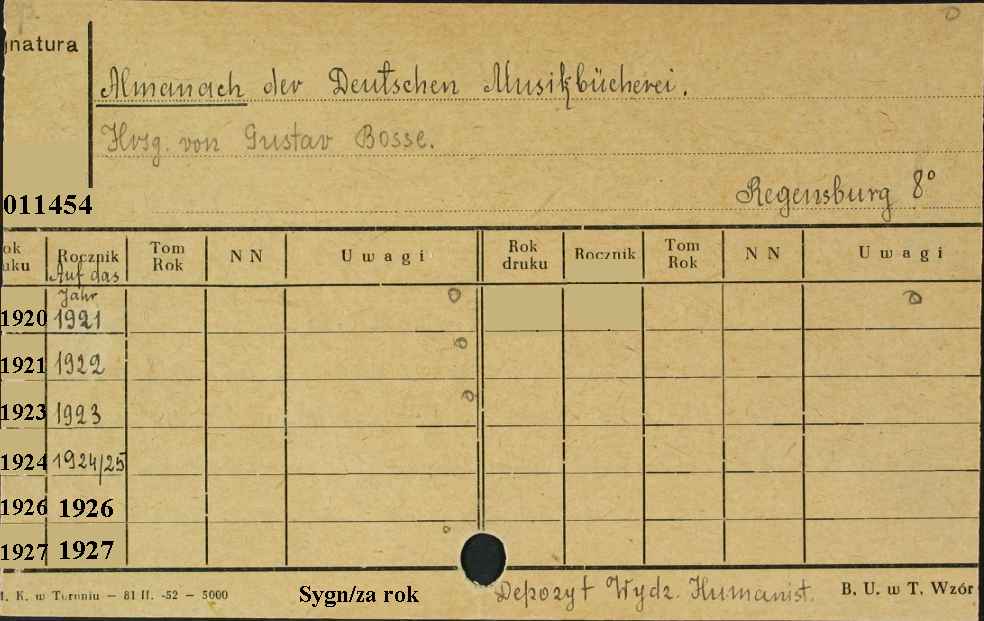 gnatura
Almanach der Deutschen Musikbücherei.
Hrsg. von Gustav Bosse.
Regensburg 8°
011454
ok uku Rocznik Tom Rok NN Uwagi Rok druku Rocznik Tom Rok NN Uwagi
Auf das Jahr
1920 1921
1921 1922
1923 1923
1924 1924/25
1926 1926
1927 1927
I. K. w Toruniu – 81 II. -52 – 5000 Sygn/za rok Depozyt Wydz. Humanist. B. U. w T. Wzór